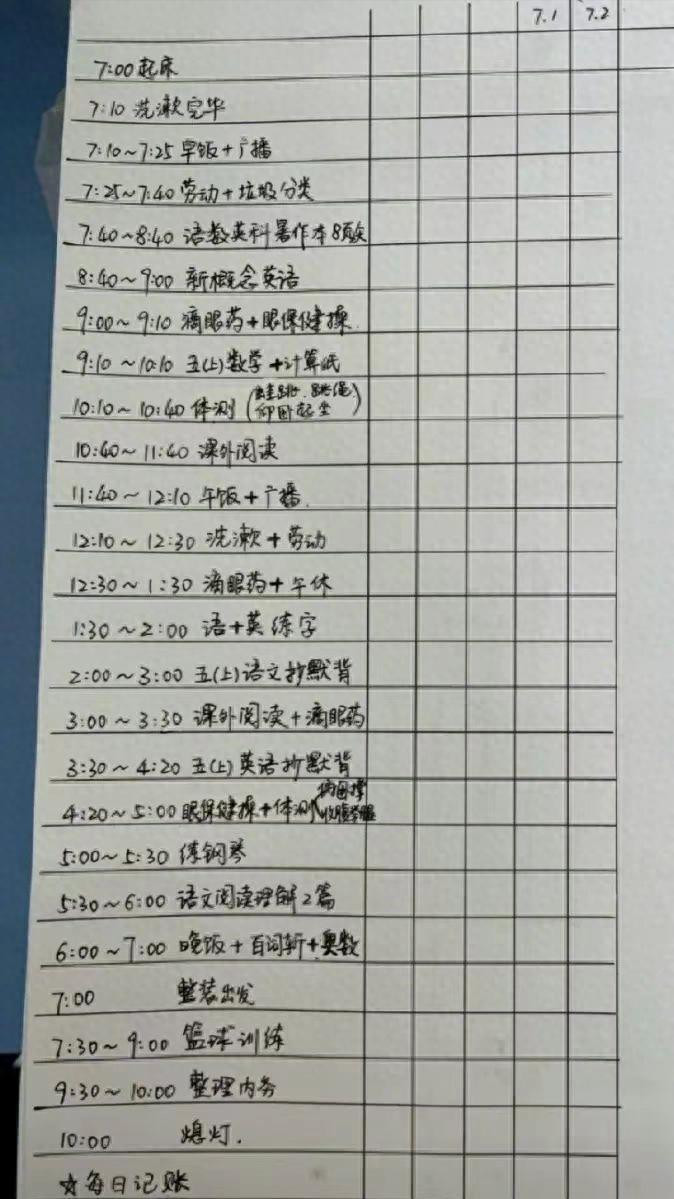 7.1 7.2
7:00 起床
7:10 洗漱完毕
7:10~7:25 早饭+广播
7:25~7:40 劳动+垃圾分类
7:40~8:40 语数英科暑作本8页
8:40~9:00 新概念英语
9:00~9:10 滴眼药+眼保健操.
9:10~10:10 五(上)数学+计算纸
10:10~10:40 体测(蛙跳、跳绳
仰卧起坐)
10:40~11:40 课外阅读
11:40~12:10 午饭+广播.
12:10~12:30 洗漱+劳动
12:30~1:30 滴眼药+午休
1:30~2:00 语+英练字
2:00~3:00 五(上)语文抄默背
3:00~3:30 课外阅读+滴眼药
3:30~4:20 五(上)英语抄默背
4:20~5:00 眼保健操+体测
5:00~5:30 练钢琴
5:30~6:00 语文阅读理解2篇
6:00~7:00 晚饭+百词斩+奥数
7:00 整装出发
7:30~9:00 篮球训练
9:30~10:00 整理内务
10:00 熄灯.
☆每日记账